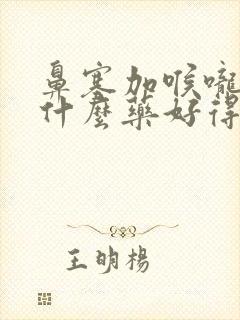 鼻塞加喉嚨
什麼藥好得
王明楊